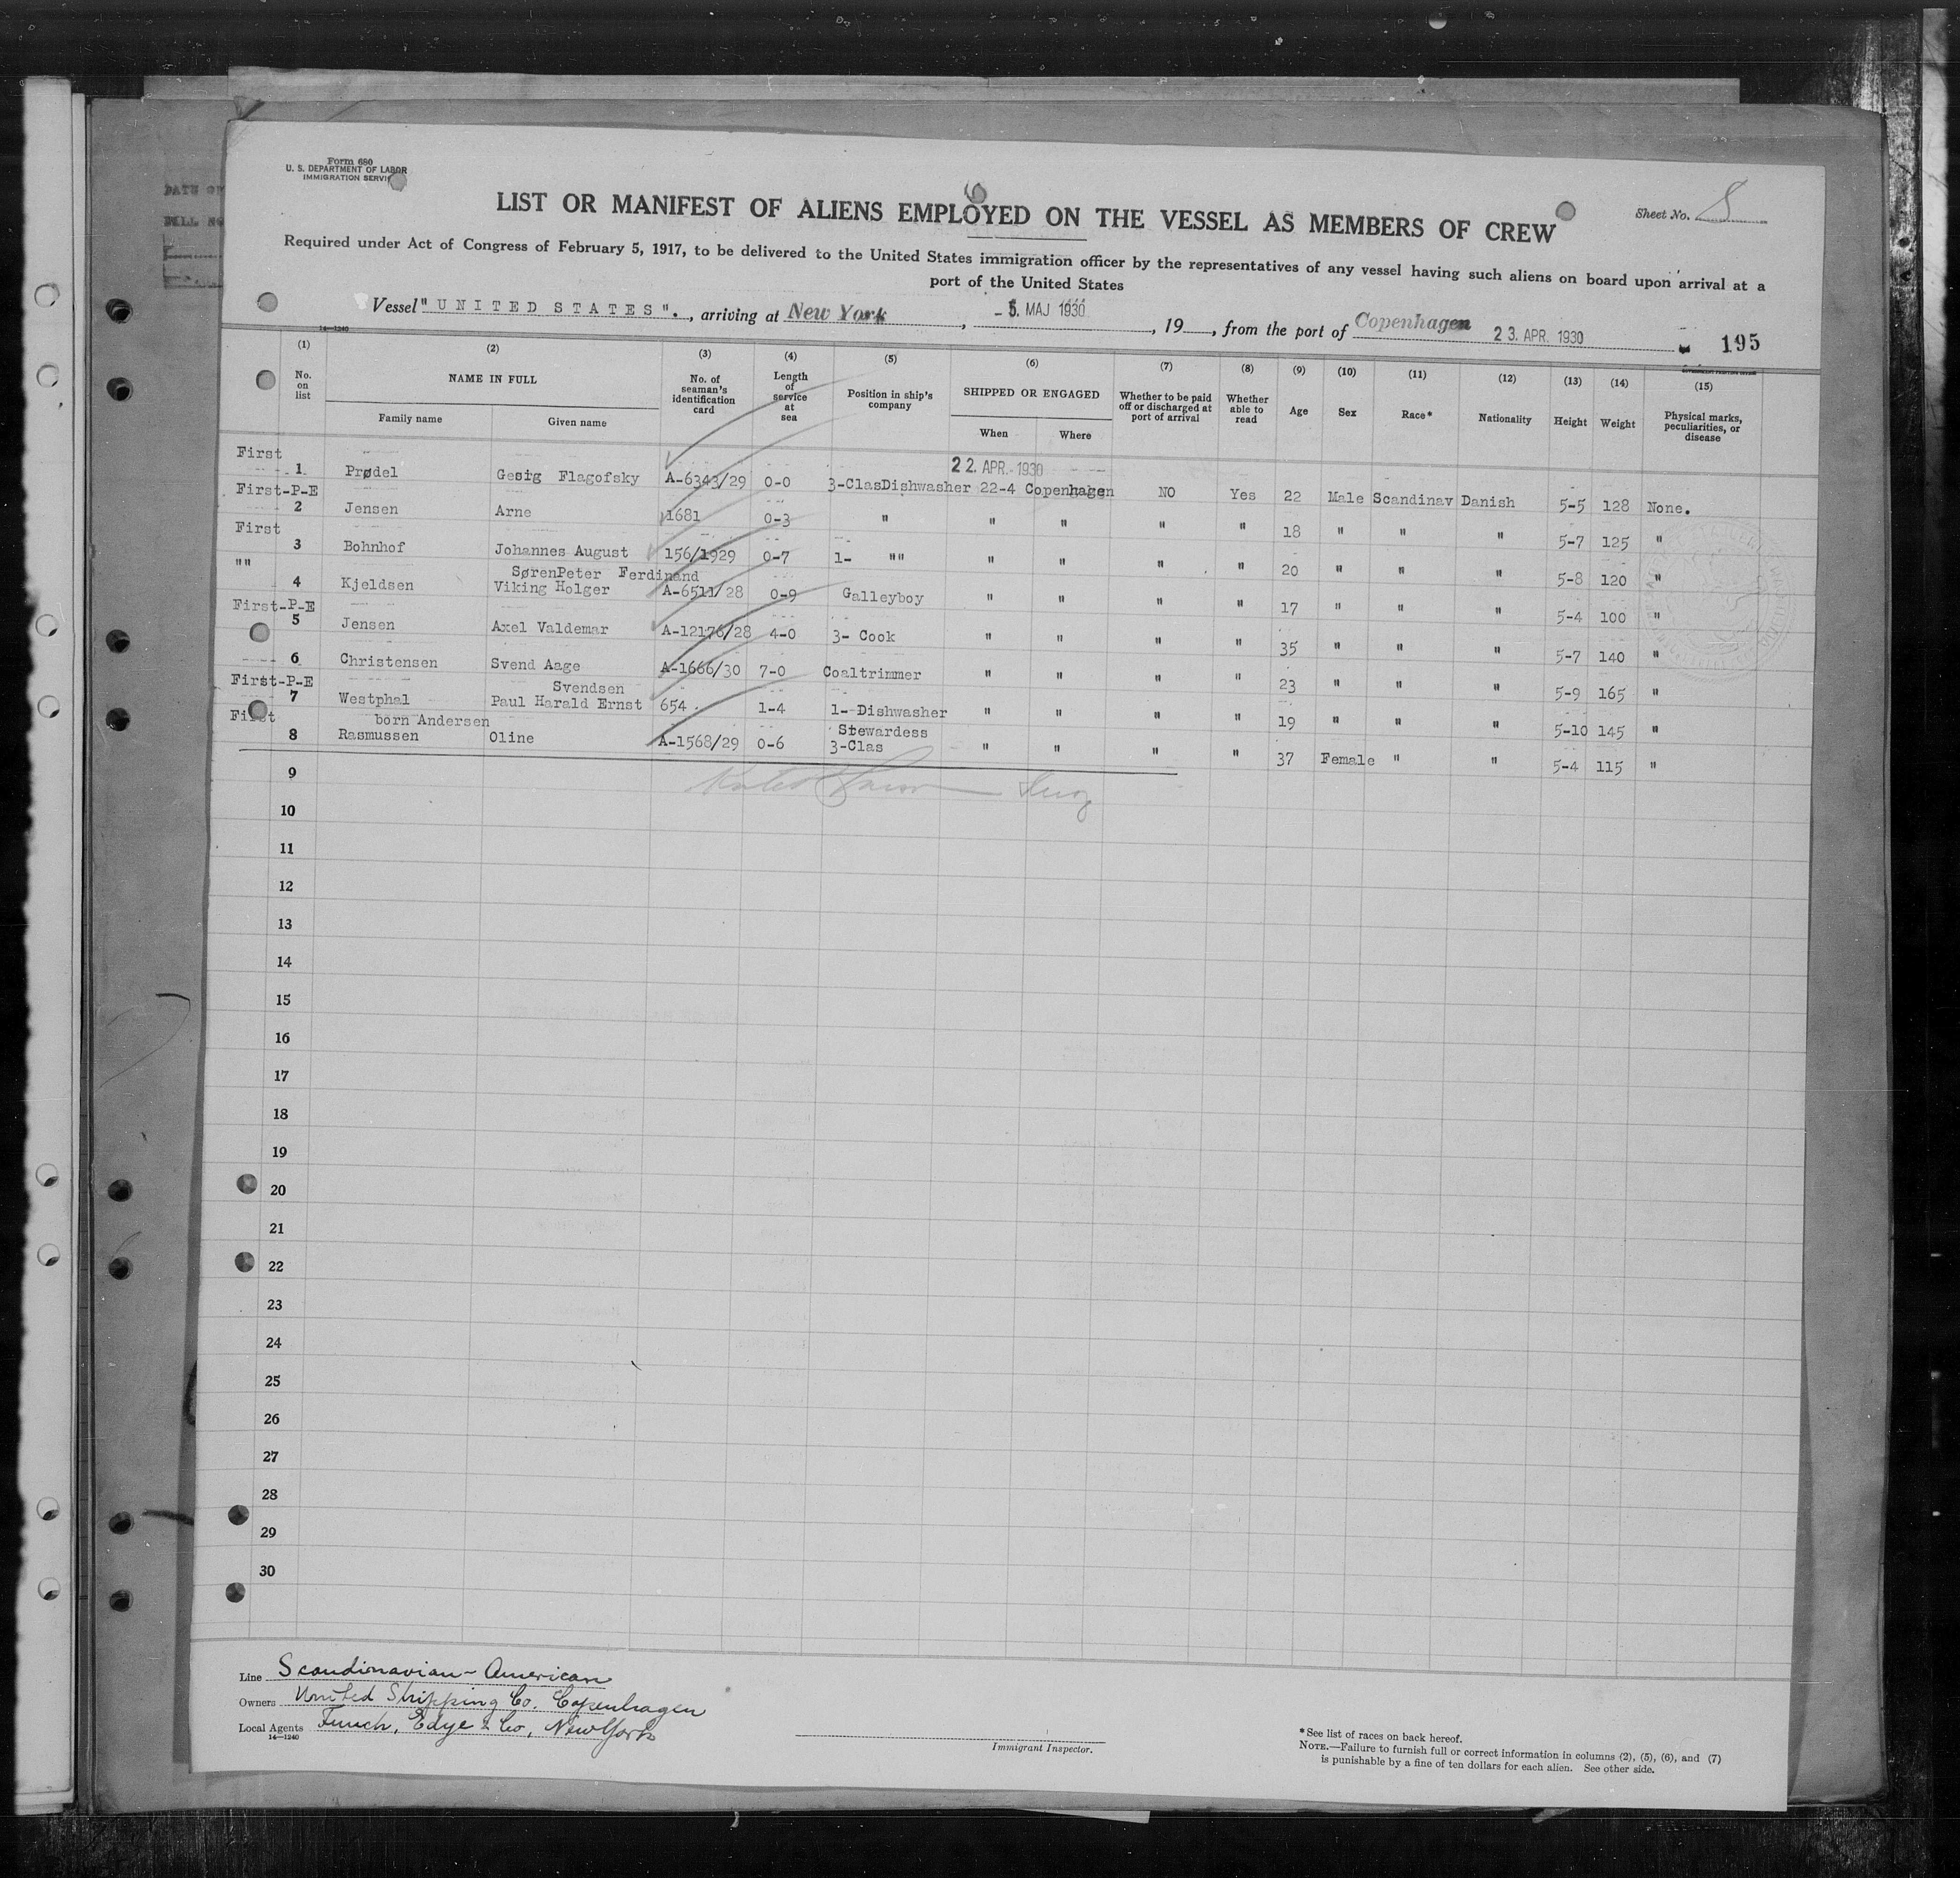 DATE OF
BILL NO
Form 680
U. S. DEPARTMENT OF LABOR
IMMIGRATION SERVICE
LIST OR MANIFEST OF ALIENS EMPLOYED ON THE VESSEL AS MEMBERS OF CREW
Sheet No. 8
Required under Act of Congress of February 5, 1917, to be delivered to the United States immigration officer by the representatives of any vessel having such aliens on board upon arrival at a
port of the United States
Vessel "UNITED STATES"., arriving at New York, - 5. MAJ 1930, 19, from the port of Copenhagen 23. APR. 1930
195
14—1240
(1) (2) (3) (4) (5) (6) (7) (8) (9) (10) (11) (12) (13) (14) (15)
No. on list NAME IN FULL Family name Given name No. of seaman's identification card Length of service at sea Position in ship's company SHIPPED OR ENGAGED When Where Whether to be paid off or discharged at port of arrival Whether able to read Age Sex Race* Nationality Height Weight Physical marks, peculiarities, or disease
First 22. APR. 1930
1 Prødel Flagofsky A-6343/29 0-0 3-ClasDishwasher 22-4 Copenhagen NO Yes 22 Male Scandinav Danish 5-5 128 None.
First-P-E
2 Jensen Arne 1681 0-3 " " " " " 18 " " " 5-7 125 "
First
3 Bohnhof Johannes August 156/1929 0-7 1- "" " " " " 20 " " " 5-8 120 "
"" SørenPeter Ferdinand
4 Kjeldsen Viking Holger A-6511/28 0-9 Galleyboy " " " " 17 " " " 5-4 100 "
First-P-E
5 Jensen Axel Valdemar A-12176/28 4-0 3- Cook " " " " 35 " " " 5-7 140 "
6 Christensen Svend Aage A-1666/30 7-0 Coaltrimmer " " " " 23 " " " 5-9 165 "
First-P-E Svendsen
7 Westphal Paul Harald Ernst 654 1-4 1- Dishwasher " " " " 19 " " " 5-10 145 "
First born Andersen Stewardess
8 Rasmussen Oline A-1568/29 0-6 3-Clas " " " " 37 Female " " 5-4 115 "
9
10
11
12
13
14
15
16
17
18
19
20
21
22
23
24
25
26
27
28
29
30
Line Scandinavian-American
Owners United Shipping Co. Copenhagen
Local Agents Funch, Edye & Co, New York
14—1240
Immigrant Inspector.
*See list of races on back hereof.
NOTE.—Failure to furnish full or correct information in columns (2), (5), (6), and (7)
is punishable by a fine of ten dollars for each alien. See other side.